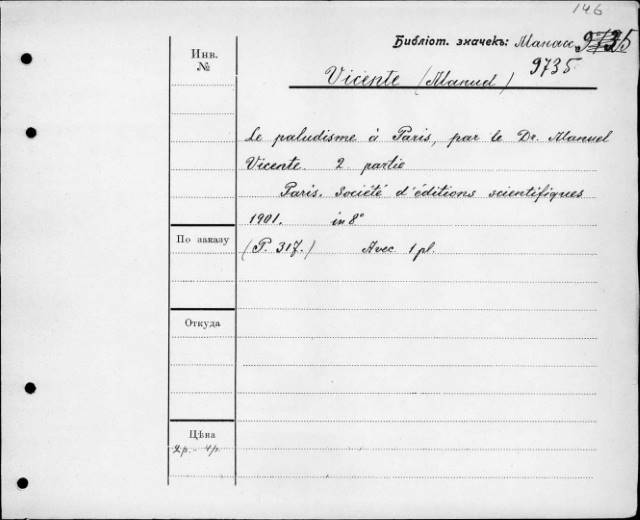 146
Библіот. значекъ: Манас 9735
9735
Инв.
№
Vicente (Manuel)
Le paludisme à Paris, par le Dr. Manuel
Vicente. 2 partie
Paris. Société d'éditions scientifiques
1901. in 8°
По заказу
(P. 317.) Avec 1 pl.
Откуда
Цѣна
2р. - 4р.